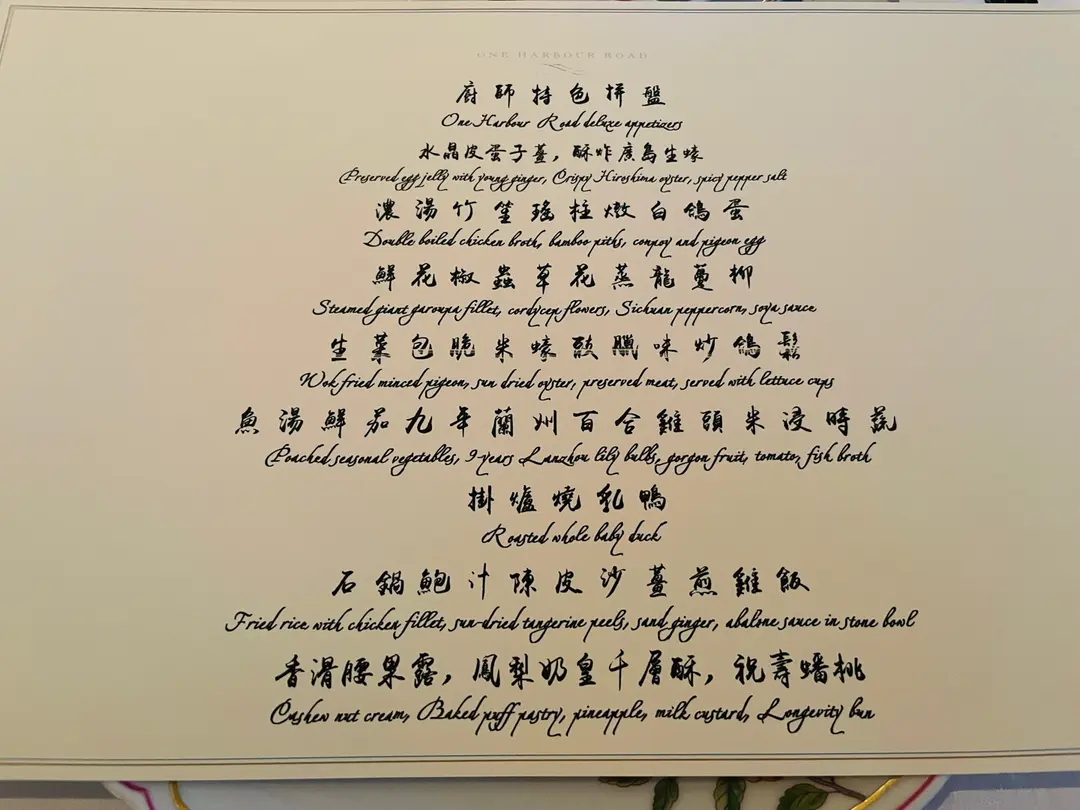 ONE HARBOUR ROAD
廚師特色拼盤
One Harbour Road deluxe appetizers
水晶皮蛋子薑，酥炸廣島生蠔
Preserved egg jelly with young ginger, Crispy Hiroshima oyster, spicy pepper salt
濃湯竹笙瑤柱燉白鴿蛋
Double boiled chicken broth, bamboo piths, conpoy and pigeon egg
鮮花椒蟲草花蒸龍躉柳
Steamed giant garoupa fillet, cordycep flowers, Sichuan peppercorn, soya sauce
生菜包脆米蠔豉臘味炒鴿鬆
Wok fried minced pigeon, sun dried oyster, preserved meat, served with lettuce cups
魚湯鮮茄九年蘭州百合雞頭米浸時蔬
Poached seasonal vegetables, 9-years Lanzhou lily bulbs, gorgon fruit, tomato, fish broth
掛爐燒乳鴨
Roasted whole baby duck
石鍋鮑汁陳皮沙薑煎雞飯
Fried rice with chicken fillet, sun-dried tangerine peels, sand ginger, abalone sauce in stone bowl
香滑腰果露，鳳梨奶皇千層酥，祝壽蟠桃
Cashew nut cream, Baked puff pastry, pineapple, milk custard, Longevity bun